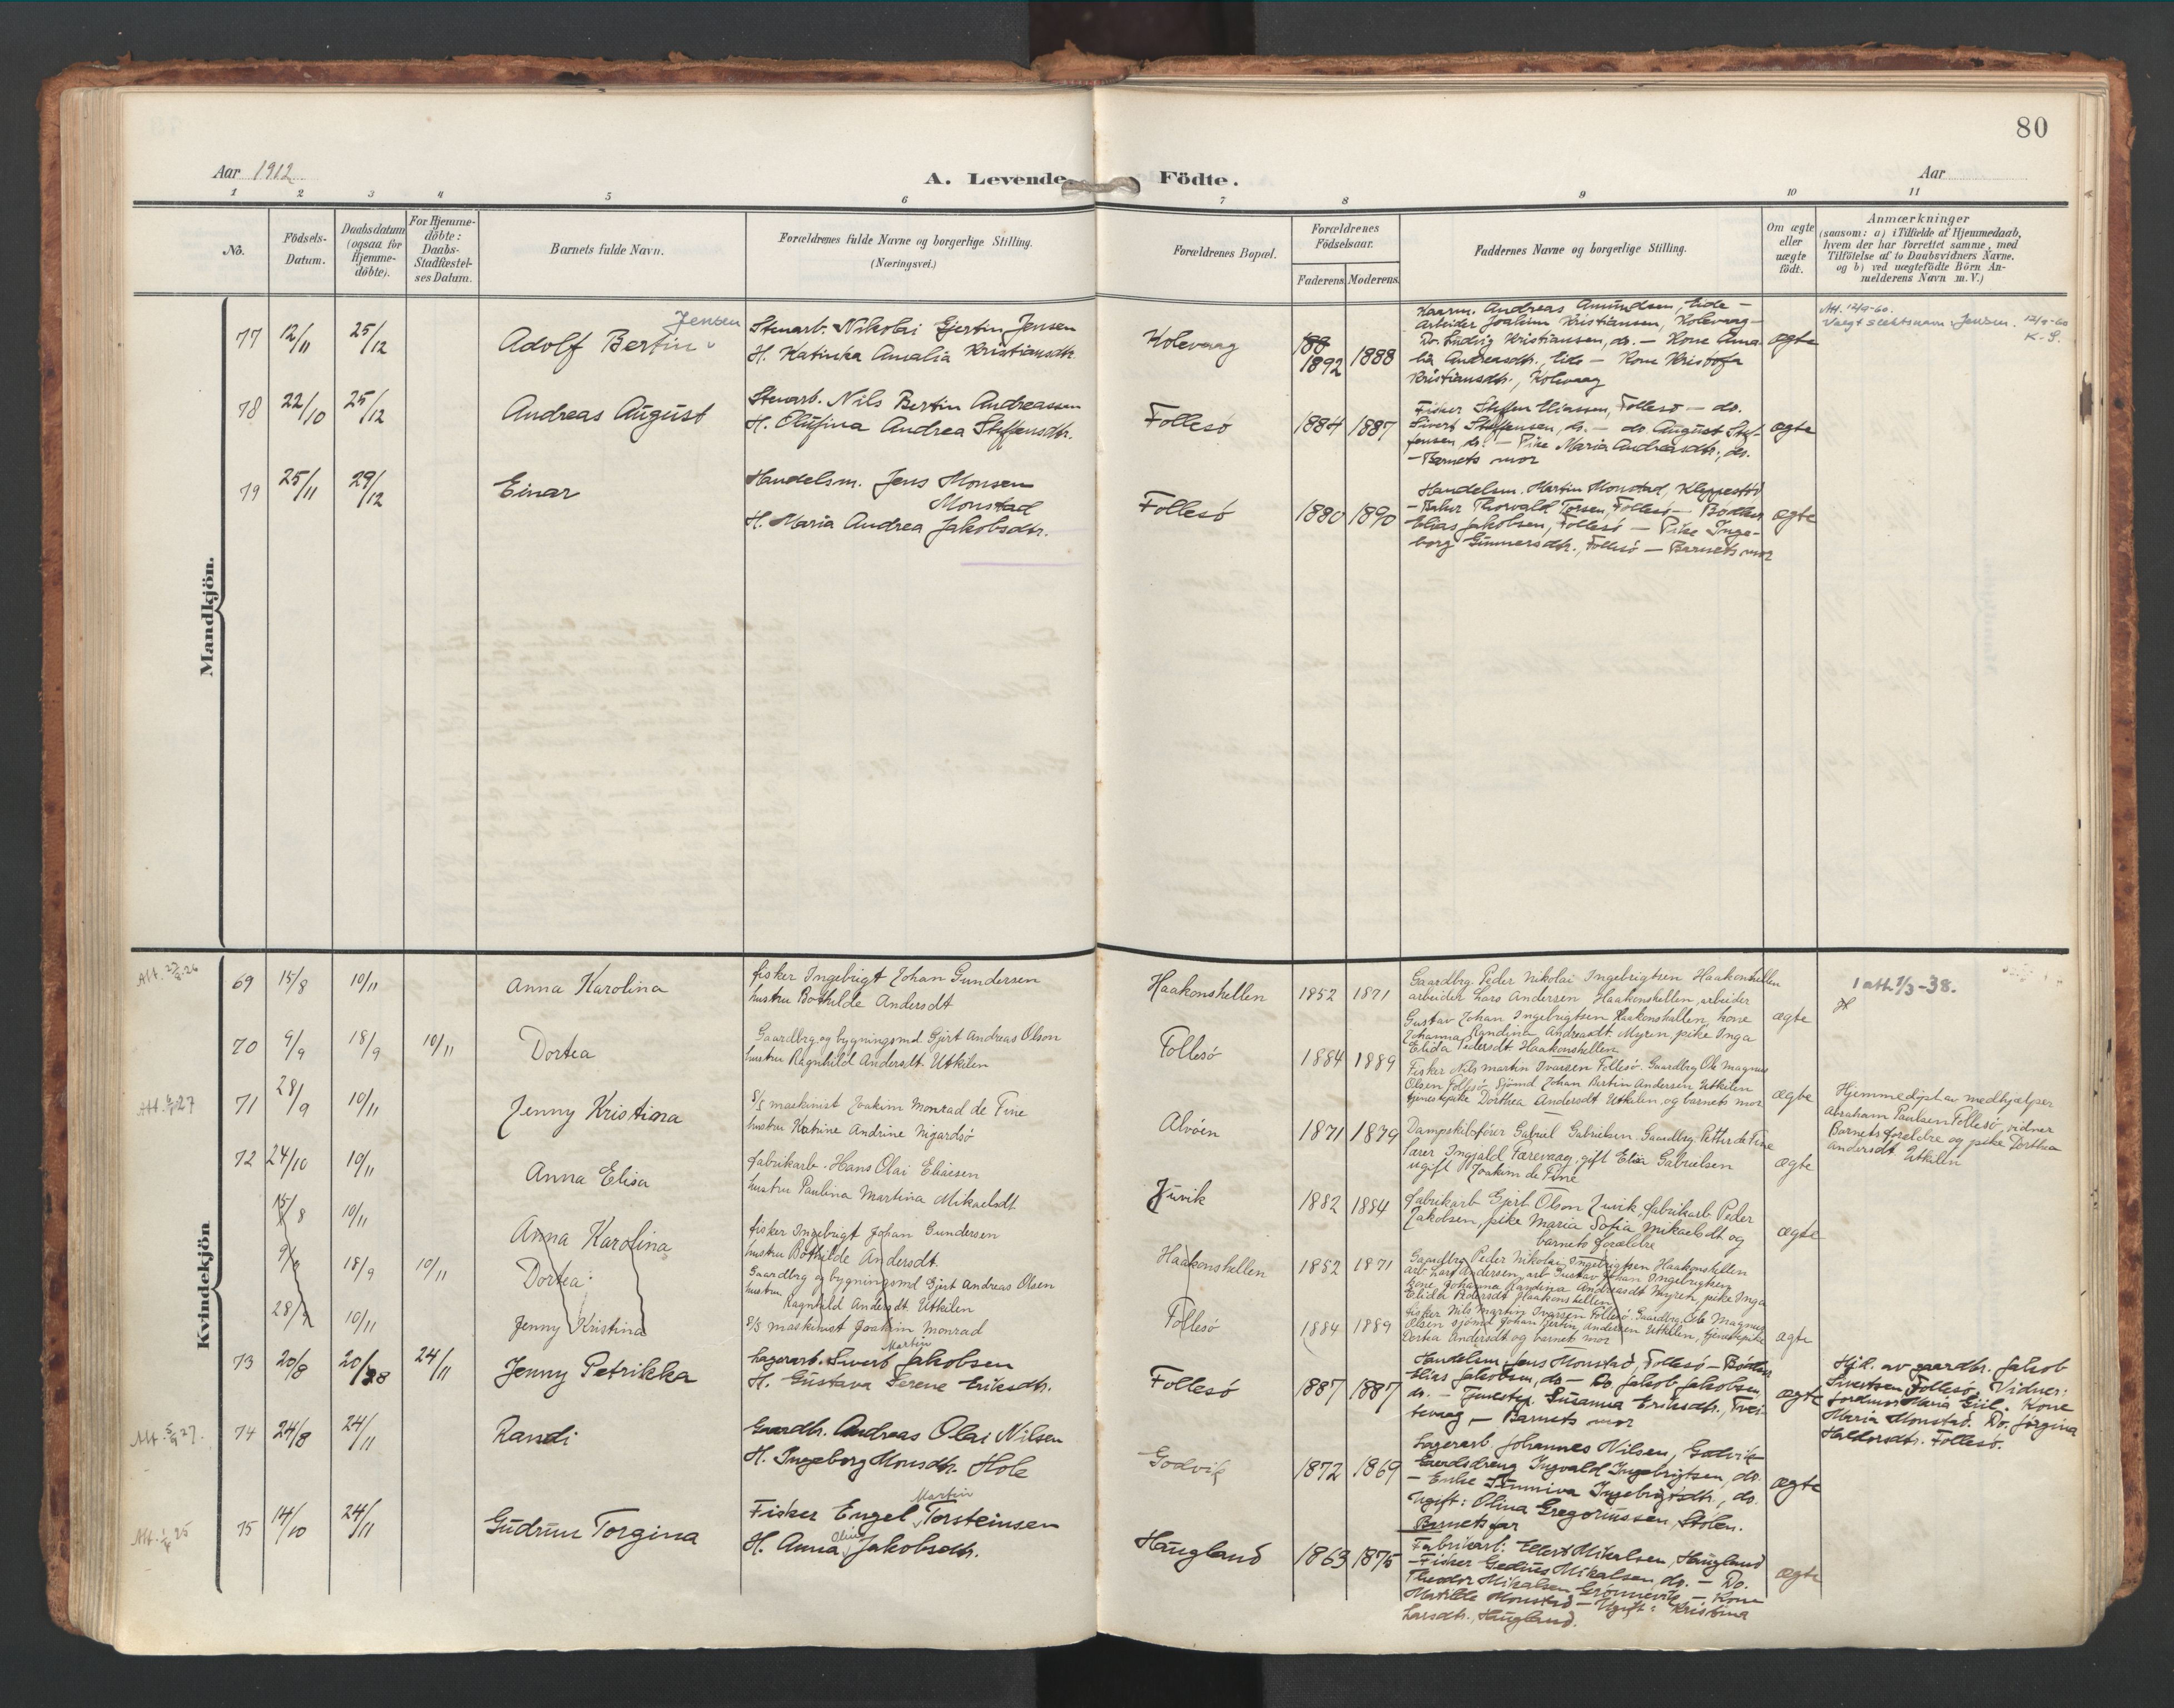 80
Aar 1912
A. Levende Födte.
Aar
1 2 3 4 5 6 7 8 9 10 11
No.
Födsels-
Datum.
Daabsdatum
(ogsaa for
Hjemme-
döbte).
For Hjemme-
döbte:
Daabs-
Stadfæstel-
ses Datum.
Barnets fulde Navn.
Forældrenes fulde Navne og borgerlige Stilling.
(Næringsvei.)
Forældrenes Bopæl.
Forældrenes
Födselsaar.
Faderens. Moderens.
Faddernes Navne og borgerlige Stilling.
Om ægte
eller
uægte
födt.
Anmærkninger
(saasom: a) i Tilfælde af Hjemmedaab,
hvem der har forrettet samme, med
Tilföielse af to Daabsvidners Navne.
og b) ved uægtefödte Börn An-
melderens Navn m.V.)
Mandkjön.
77 12/11 25/12
Jensen
Adolf Bertin
Stenarb. Nikolai Gjertin Jensen
H. Katinka Amalia Kristiansdtr.
Kolevaag
188
1892 1888
Kaarm. Andreas Amundsen, Eide –
Arbeider Joakim Kristiansen, Kolevaag –
Do. Ludvig Kristiansen, do. – Kone Ama-
lia Andreasdtr. Eide – Kone Kristofa
Kristiansdtr., Kolevaag
ægte
Att. 12/9-60.
Valgt slektsnavn Jensen. 12/9-60
K. S.
78 22/10 25/12
Andreas August
Stenarb. Nils Bertin Andreassen
H. Olufina Andrea Steffensdtr.
Follesö
1884 1887
Fisker Steffen Eliassen, Follesö – do.
Sivert Steffensen, do. – do. August Stef-
fensen, do. – Pike Maria Andreasdtr., do.
– Barnets mor
ægte
79 25/11 29/12
Einar
Handelsm. Jens Monsen
Monstad
H. Maria Andrea Jakobsdtr.
Follesö
1880 1890
Handelsm. Martin Monstad, Kleppestö
– Baker Thorvald Torsen, Follesö – Bödker
Elias Jakobsen, Follesö – Pike Inge-
borg Gunnersdtr., Follesö – Barnets mor
ægte
Kvindekjön
69 15/8 10/11
Anna Karolina
fisker Ingebrigt Johan Gundersen
hustru Bothilde Andersdt
Haakonshellen
1852 1871
Gaardbrg. Peder Nikolai Ingebrigtsen Haakonshellen
arbeider Lars Andersen Haakonshellen, arbeider
Gustav Johan Ingebrigtsen Haakonshellen, kone
Johanna Randina Andreasdt Myren, pike Inga
Elida Pedersdt Haakonshellen
ægte
1 att 1/3-38.
70 9/9 18/9 10/11
Dortea
Gaardbrg og bygningsmd Gjert Andreas Olson
hustru Ragnhild Andersdt. Utkilen
Follesö
1884 1889
Fisker Nils Martin Ivarsen Follesö. Gaardbrg Ole Magnus
Olsen Follesö, Sjömd Johan Bertin Andersen Utkilen
tjenestepike Dorthea Andersdt Utkilen og barnets mor
ægte
Hjemmedöpt av medhjælper
Abraham Paulsen Follesö, vidner
Barnets forældre og pike Dorthea
Andersdt Utkilen
71 28/9 10/11
Jenny Kristina
S/S maskinist Joakim Monrad de Fine
hustru Katrine Andrine Nigardsö
Alvöen
1871 1879
Dampskibsförer Gabriel Gabrielsen. Gaardbrg. Petter de Fine
Lærer Ingjald Lærevaag, gift Elia Gabrielsen
ugift Joakim de Fine
ægte
72 24/10 10/11
Anna Elisa
fabrikarb. Hans Olai Eliasen
hustru Paulina Martina Mikaelsdt
Juvik
1882 1884
fabrikarb Gjert Olson Juvik, fabrikarb Peder
Jakobsen, pike Maria Sofia Mikaelsdt og
barnets forældre
ægte
15/8 10/11
Anna Karolina
fisker Ingebrigt Johan Gundersen
hustru Bothilde Andersdt.
Haakonshellen
1852 1871
Gaardbrg Peder Nikolai Ingebrigtsen Haakonshellen
arb Lars Andersen, arb Gustav Johan Ingebrigtsen
kone Johanna Randina Andreasdt Myren, pike Inga
Elida Pedersdt Haakonshellen
9/9 18/9 10/11
Dortea
Gaardbrg og bygningsmd Gjert Andreas Olsen
hustru Ragnhild Andersdt Utkilen
Follesö
1884 1889
fisker Nils Martin Ivarsen Follesö. Gaardbrg Ole Magnus
Olsen sjömd Johan Bertin Andersen Utkilen, tjenestepike
Dortea Andersdt og barnets mor
ægte
28/9 10/11
Jenny Kristina
S/S maskinist Joakim Monrad
73 20/8 20/8 24/11
Jenny Petrikka
Martin
Lagerarb. Sivert Jakobsen
H. Gustava Serene Eriksdtr.
Follesö
1887 1887
Handelsm. Jens Monstad, Follesö – Bödker
Elias Jakobsen, do – Do Jakob Jakobsen,
do. – Tjenestep. Susanna Eriksdtr., Trei-
tevaag – Barnets mor
ægte
Hjd. av gaardbr. Jakob
Sivertsen Follesö. Vidner:
Jordmor Maria Giil. Kone
Maria Monstad. Do. Jørgina
Haldorsdtr. Follesö.
74 24/8 24/11
Randi
Gaardbr. Andreas Olai Nilsen
H. Ingeborg Monsdtr. Hole
Godvik
1872 1869
Lagerarb. Johannes Nilsen, Godvik –
Gaardsdreng Ingvald Ingebrigtsen, do.
– Enke Sunniva Ingebrigtsdtr., do.
Ugift: Olina Gregoriussen, Stölen.
Barnets far
ægte
75 14/10 24/11
Gudrun Torgina
Martin
Fisker Engel Torsteinsen
H. Anna Jakobsdtr.
Haugland
1863 1875
Fabrikarb: Ellert Mikalsen, Haugland
– Fisker Gedius Mikalsen, do. – Do.
Theodor Mikalsen Grönnevik – Kone
Matilde Monstad – Ugift: Kristina
Larsdtr., Haugland.
ægte